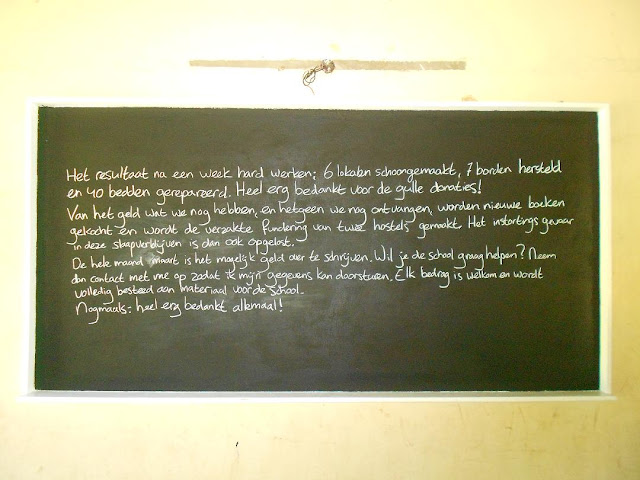 Het resultaat na een week hard werken: 6 lokalen schoongemaakt, 7 borden hersteld
en 40 bedden gerepareerd. Heel erg bedankt voor de gulle donaties!
Van het geld wat we nog hebben, en hetgeen we nog ontvangen, worden nieuwe boeken
gekocht en wordt de verzakte fundering van twee hostels gemaakt. Het instortings gevaar
in deze slaapverblijven is dan ook opgelost.
De hele maand maart is het mogelijk geld over te schrijven. Wil je de school graag helpen? Neem
dan contact met me op zodat ik mijn gegevens kan doorsturen. Elk bedrag is welkom en wordt
volledig besteed aan materiaal voor de school.
Nogmaals: heel erg bedankt allemaal!